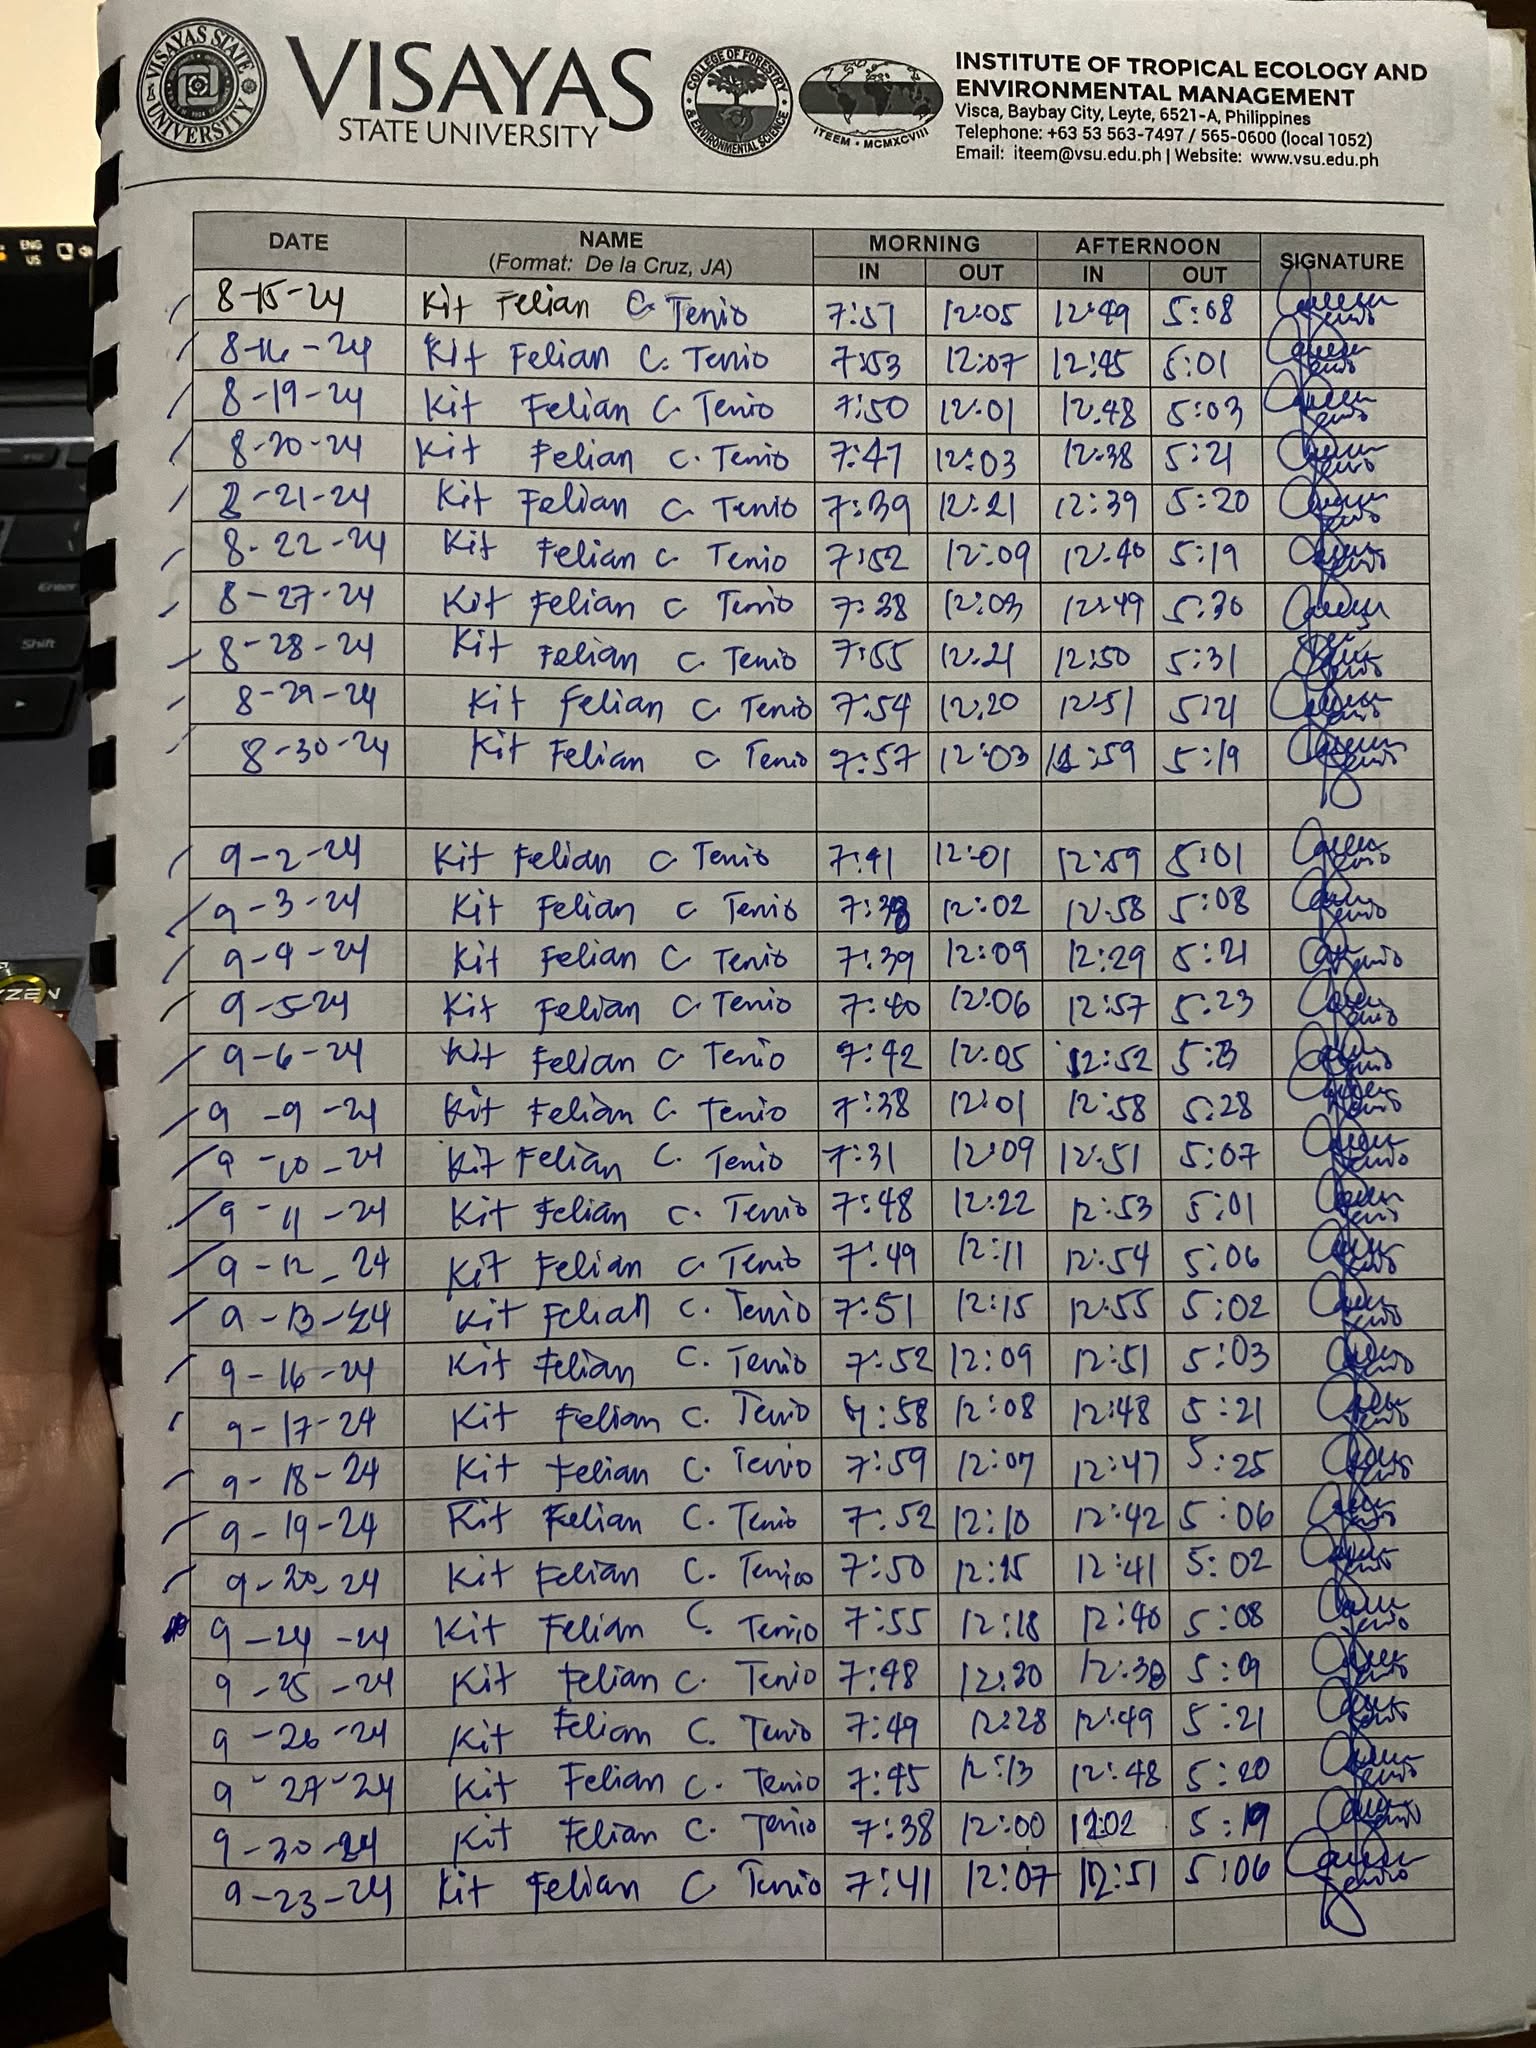 VISAYAS STATE UNIVERSITY
VISAYAS
STATE UNIVERSITY
COLLEGE OF FORESTRY & ENVIRONMENTAL SCIENCE
ITEEM • MCMXCVIII
INSTITUTE OF TROPICAL ECOLOGY AND
ENVIRONMENTAL MANAGEMENT
Visca, Baybay City, Leyte, 6521-A, Philippines
Telephone: +63 53 563-7497 / 565-0600 (local 1052)
Email: iteem@vsu.edu.ph | Website: www.vsu.edu.ph
ENG
US
DATE NAME MORNING AFTERNOON SIGNATURE
(Format: De la Cruz, JA) IN OUT IN OUT
8-15-24 Kit Felian C. Tenio 7:51 12:05 12:49 5:08
8-16-24 Kit Felian C. Tenio 7:53 12:07 12:45 5:01
8-19-24 Kit Felian C. Tenio 7:50 12:01 12:48 5:03
8-20-24 Kit Felian C. Tenio 7:47 12:03 12:38 5:21
8-21-24 Kit Felian C Tenio 7:39 12:21 12:39 5:20
8-22-24 Kit Felian C. Tenio 7:52 12:09 12:40 5:19
8-27-24 Kit Felian C Tenio 7:38 12:03 12:49 5:30
8-28-24 Kit Felian C. Tenio 7:55 12:21 12:50 5:31
8-29-24 Kit Felian C Tenio 7:54 12:20 12:51 5:21
8-30-24 Kit Felian C Tenio 7:57 12:03 12:59 5:19
9-2-24 Kit Felian C Tenio 7:41 12:01 12:59 5:01
9-3-24 Kit Felian C Tenio 12:02 12:58 5:08
9-4-24 Kit Felian C Tenio 7:39 12:09 12:29 5:21
9-5-24 Kit Felian C Tenio 7:40 12:06 12:57 5:23
9-6-24 Kit Felian C Tenio 7:42 12:05 12:52
9-9-24 Kit Felian C. Tenio 7:38 12:01 12:58 5:28
9-10-24 Kit Felian C. Tenio 7:31 12:09 12:51 5:07
9-11-24 Kit Felian C. Tenio 7:48 12:22 12:53 5:01
9-12-24 Kit Felian C Tenio 7:49 12:11 12:54 5:06
9-13-24 Kit Felian C. Tenio 7:51 12:15 12:55 5:02
9-16-24 Kit Felian C. Tenio 7:52 12:09 12:51 5:03
9-17-24 Kit Felian C. Tenio 7:58 12:08 12:48 5:21
9-18-24 Kit Felian C. Tenio 7:59 12:07 12:47 5:25
9-19-24 Kit Felian C. Tenio 7:52 12:10 12:42 5:06
9-20-24 Kit Felian C. Tenio 7:50 12:41 5:02
9-24-24 Kit Felian C. Tenio 7:55 12:18 12:40 5:08
9-25-24 Kit Felian C. Tenio 7:48 5:09
9-26-24 Kit Felian C. Tenio 7:49 12:28 12:49 5:21
9-27-24 Kit Felian C. Tenio 7:45 12:13 12:48 5:20
9-30-24 Kit Felian C. Tenio 7:38 12:00 12:02 5:19
9-23-24 Kit Felian C Tenio 7:41 12:07 12:51 5:06
Enter
Shift